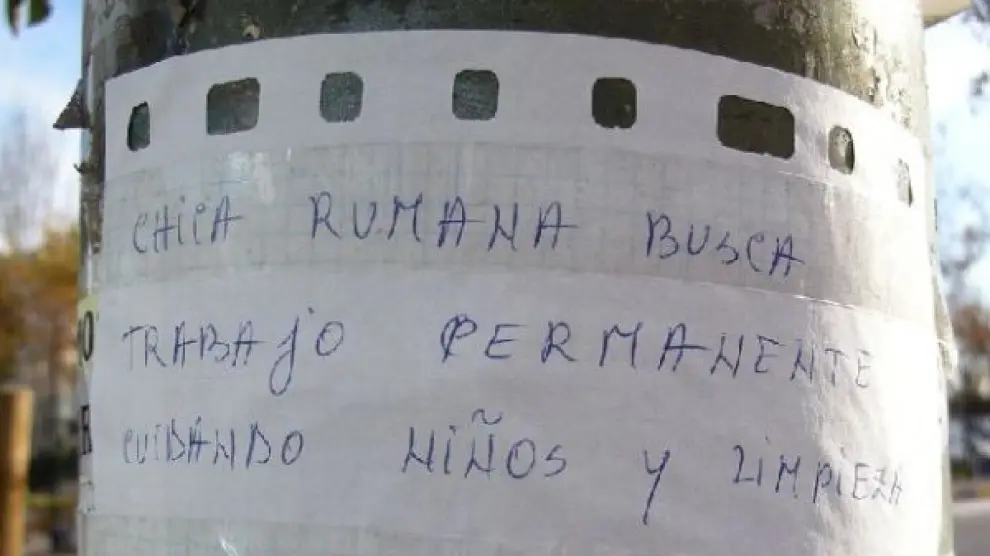 CHICA RUMANA BUSCA
TRABAJO PERMANENTE
CUIDANDO NIÑOS Y LIMPIEZA